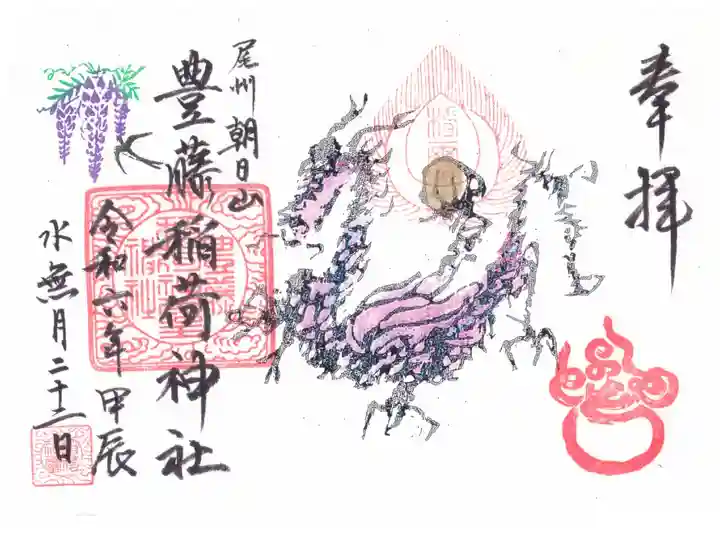 奉拝
尾州朝日山
豊藤稲荷神社
令和六年甲辰
水無月二十二日